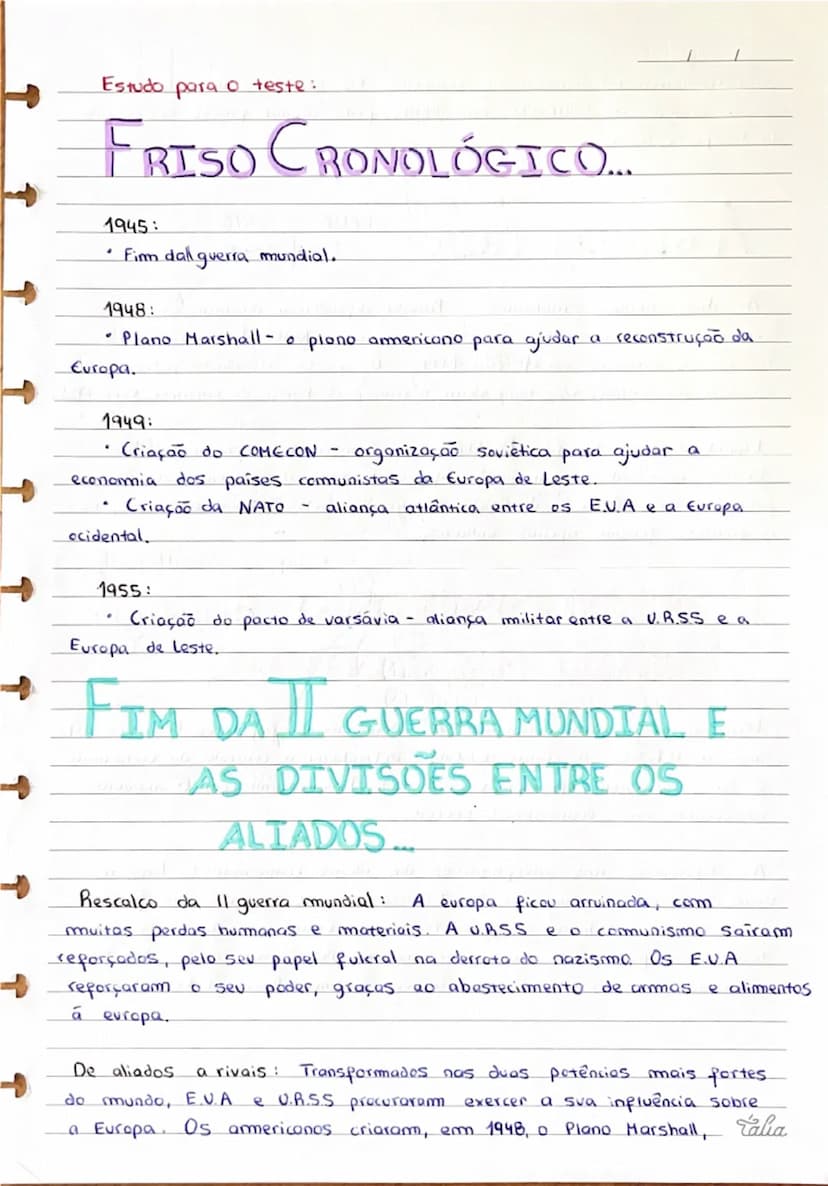 Estudo para o teste:
FRISO CRONOLÓGICO...
1945:
• Fim da II guerra mundial.
1948:
• Plano Marshall - o plano americano para ajudar a reconstrução da
Europa.
1949:
• Criação do COMECON - organização soviética para ajudar a
economia dos países comunistas da Europa de Leste.
• Criação da NATO - aliança atlântica entre os E.U.A e a Europa
ocidental.
1955:
• Criação do pacto de varsávia - aliança militar entre a U.R.SS e a
Europa de Leste.
FIM DA II GUERRA MUNDIAL E
AS DIVISÕES ENTRE OS
ALIADOS...
Rescalco da II guerra mundial: A europa ficou arruinada, com
muitas perdas humanas e materiais. A U.RSS e o comunismo saíram
reforçados, pelo seu papel fulcral na derrota do nazismo. Os E.U.A
reforçaram o seu poder, graças ao abastecimento de armas e alimentos
á europa.
De aliados a rivais: Transformados nas duas potências mais fortes
do mundo, E.U.A e U.R.SS procuraram exercer a sua influência sobre
a Europa. Os americanos criaram, em 1948, o Plano Marshall,
Tália